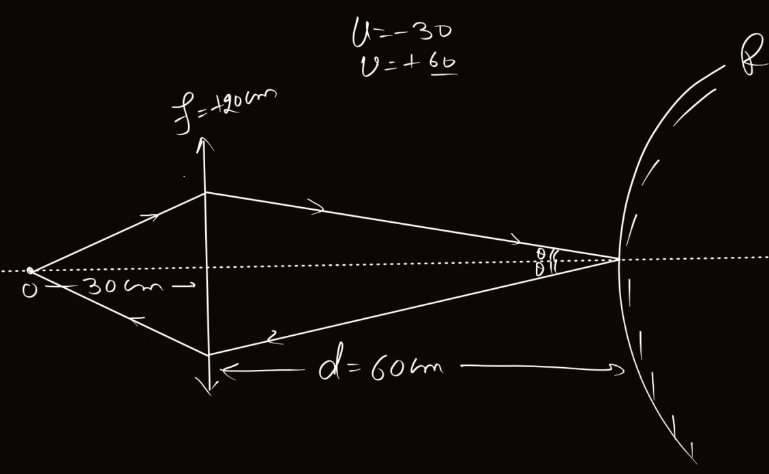 u = -30
v = +60
f = +20cm
R
θ
θ
O
30cm
d = 60cm